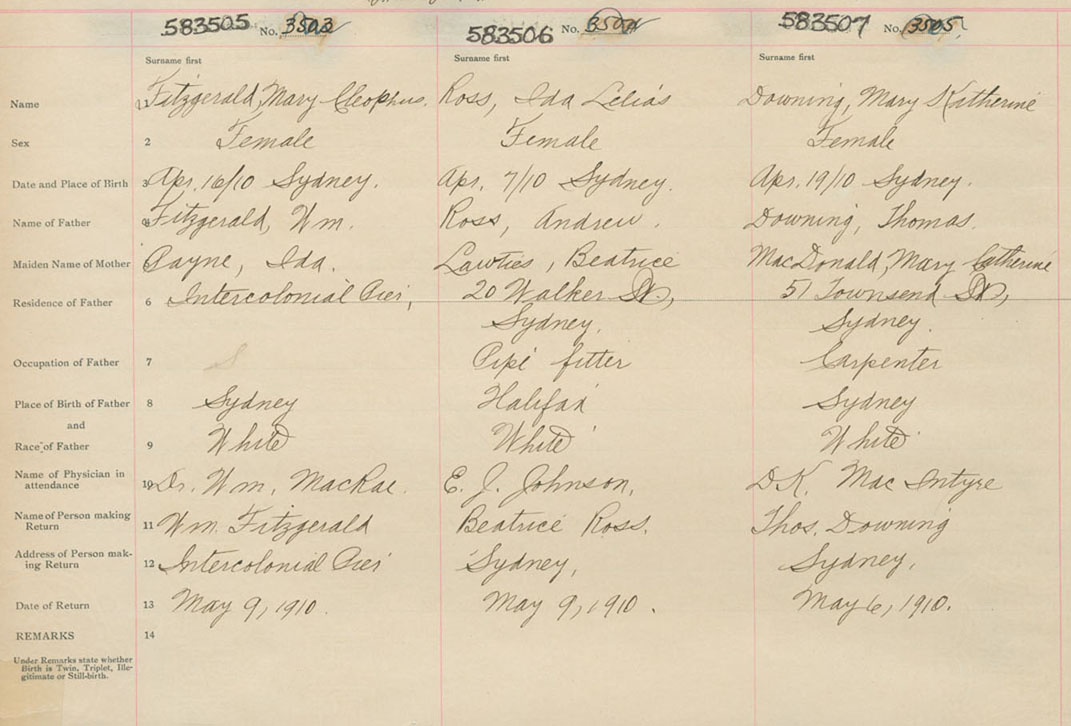 583505 No. 3503 583506 No. 3504 583507 No. 3505
Surname first Surname first Surname first
Name 1 Fitzgerald, Mary Cleophus. Ross, Ida Lelias Downing, Mary Katherine
Sex 2 Female Female Female
Date and Place of Birth 3 Apr. 16/10 Sydney. Apr. 7/10 Sydney. Apr. 19/10 Sydney.
Name of Father 4 Fitzgerald, Wm. Ross, Andrew. Downing, Thomas.
Maiden Name of Mother Payne, Ida. Lawties, Beatrice MacDonald, Mary Catherine
Residence of Father 6 Intercolonial Pier, 20 Walker St, 51 Townsend St,
Sydney. Sydney.
Occupation of Father 7 Pipe fitter Carpenter
Place of Birth of Father 8 Sydney Halifax Sydney
and
Race of Father 9 White White White
Name of Physician in attendance 10 Dr. Wm. MacRae. E. J. Johnson. D.K. Mac Intyre
Name of Person making Return 11 Wm. Fitzgerald Beatrice Ross. Thos. Downing
Address of Person making Return 12 Intercolonial Pier Sydney, Sydney.
Date of Return 13 May 9, 1910. May 9, 1910. May 6, 1910.
REMARKS 14
Under Remarks state whether
Birth is Twin, Triplet, Ille-
gitimate or Still-birth.